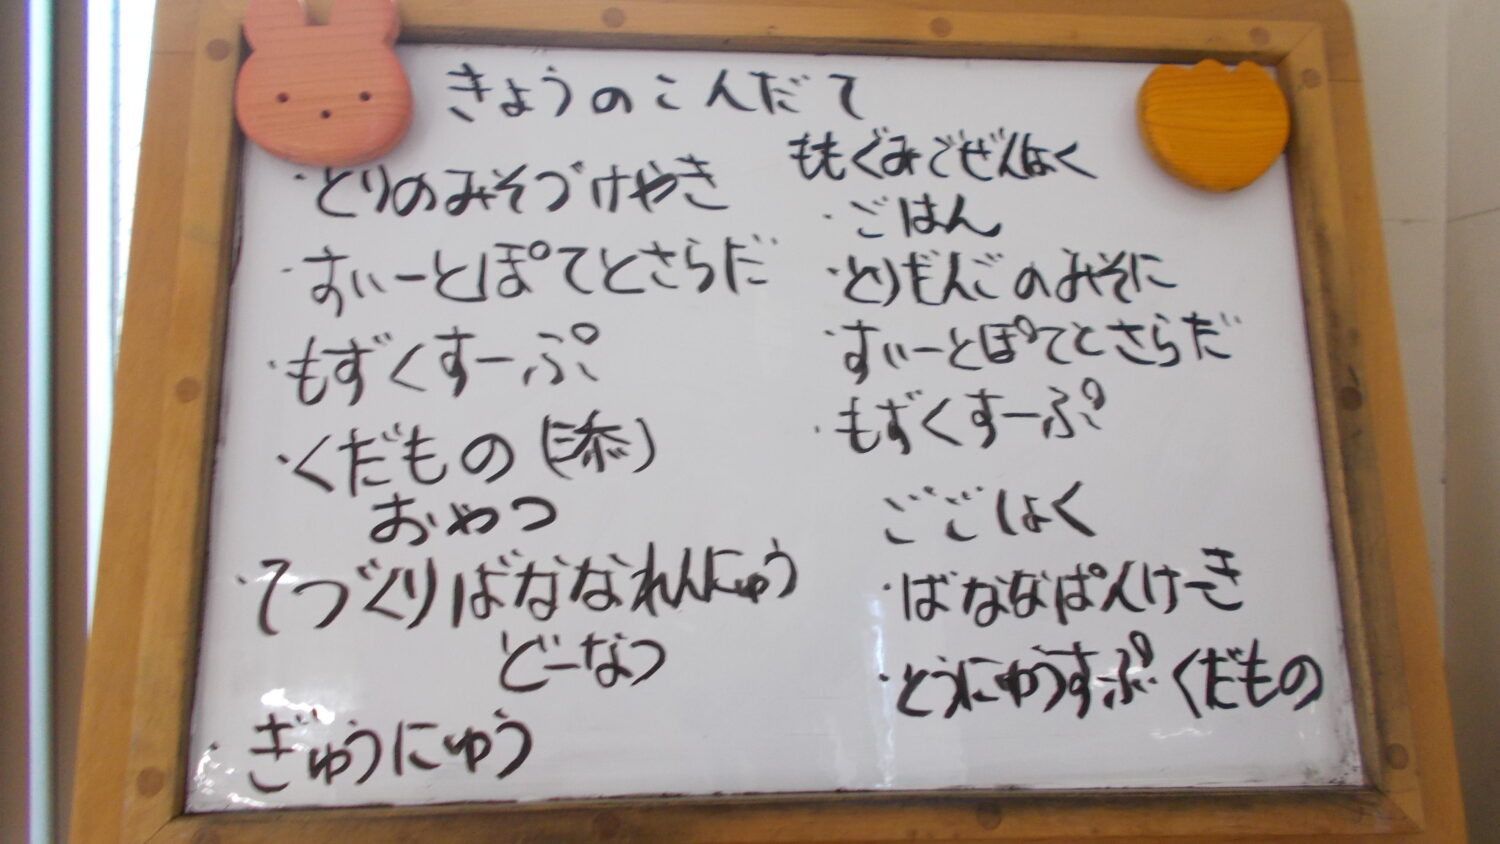 きょうのこんだて
・とりのみそづけやき
・すぃーとぽてとさらだ
・もずくすーぷ
・くだもの
おやつ
・てづくりばななれんにゅう
どーなつ
・ぎゅうにゅう
ももぐみごぜんしょく
・ごはん
・とりだんごのみそに
・すぃーとぽてとさらだ
・もずくすーぷ
ごごしょく
・ばななぱんけーき
・とうにゅうすーぷ くだもの